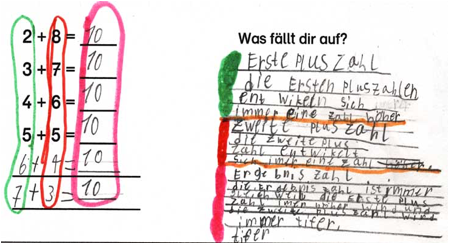 2 + 8 = 10
3 + 7 = 10
4 + 6 = 10
5 + 5 = 10
6 + 4 = 10
7 + 3 = 10
Was fällt dir auf?
Erste Plus Zahl
die Ersten Pluszahlen
entwikeln sich
immer eine zahl höher
Zweite Plus zahl
die zweite Plus
zahl entwikelt
sich imer eine zahl
Ergebnis zahl
die Ergebnis zahl ist immer
gleich weil die erste Plus
zahl imer höher wird und
die zweite Plus zahl wird
immer tifer.
tifer